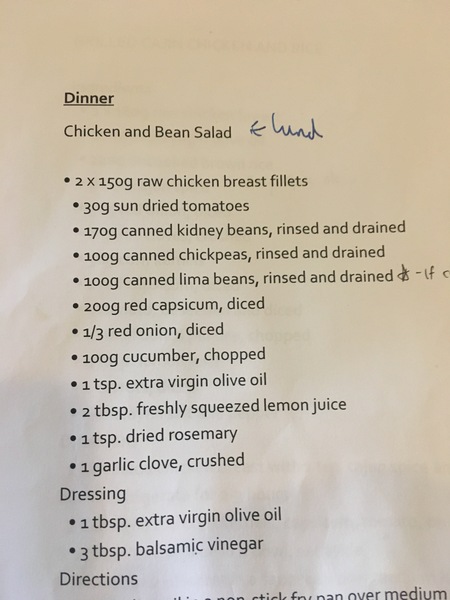 Dinner
Chicken and Bean Salad ←
• 2 x 150g raw chicken breast fillets
• 30g sun dried tomatoes
• 170g canned kidney beans, rinsed and drained
• 100g canned chickpeas, rinsed and drained
• 100g canned lima beans, rinsed and drained * - If
• 200g red capsicum, diced
• 1/3 red onion, diced
• 100g cucumber, chopped
• 1 tsp. extra virgin olive oil
• 2 tbsp. freshly squeezed lemon juice
• 1 tsp. dried rosemary
• 1 garlic clove, crushed
Dressing
• 1 tbsp. extra virgin olive oil
• 3 tbsp. balsamic vinegar
Directions
non-stick fry pan over medium